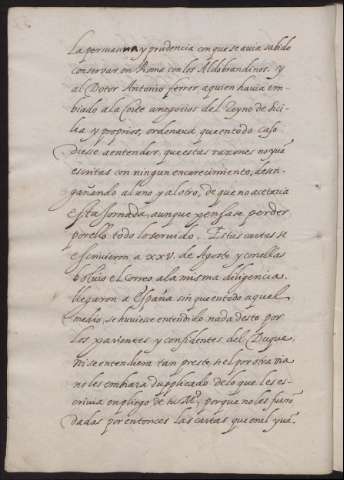 la permana y prudencia con que se auia sabido
conseruar en Roma con los Aldobrandinos. y
al Dotor Antonio ferrer aquien hauia em-
biado ala Corte anegocios del Reyno de Sici-
lia y proprios, ordenaua que en todo caso
diese a entender, que estas razones no yuã
escritas con ningun encarecimiento, desen-
gañando al uno y al otro, de que no acetaria
esta Jornada, aunque pensase perder
por ello todo lo seruido. Estas cartas se
escriuieron a xxv. de Agosto y con ellas
boluio el Correo ala misma diligencia
llegaron a España sin que en todo aquel
medio, se huuiese entendido nada desto por
los parientes y confidentes del Duque
ni se entendiera tan presto, si el por otra via
no les embiara duplicado de lo que les es-
criuia en pliego de su Mg.d porque no les fuerõ
dadas por entonces las cartas que en el yuã.